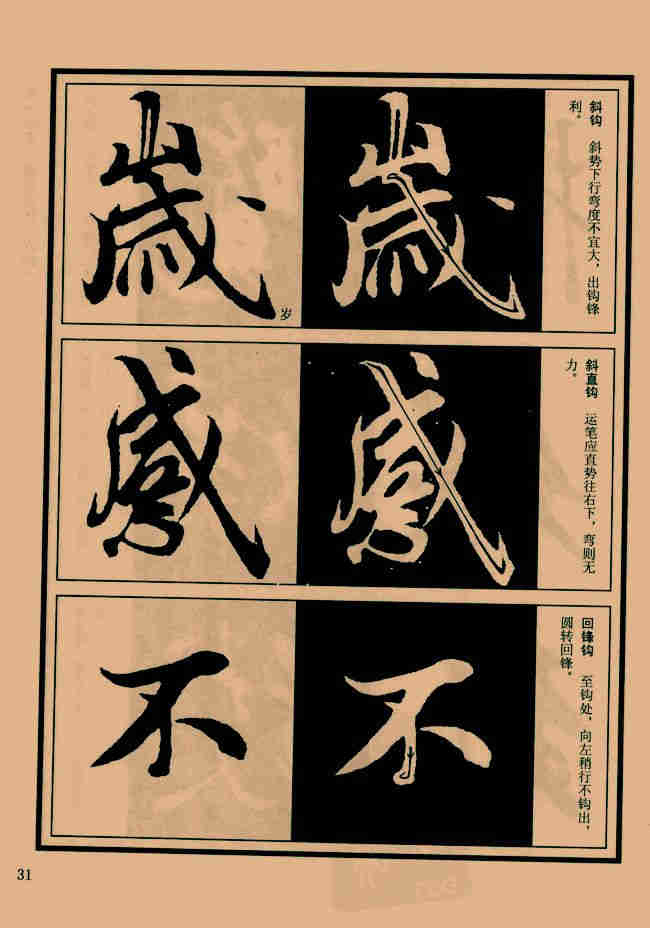 歲
岁
斜钩 斜势下行弯度不宜大，出钩锋
利。
感
斜直钩 运笔应直势往右下，弯则无
力。
不
回锋钩 至钩处，向左稍行不钩出，
圆转回锋。
31